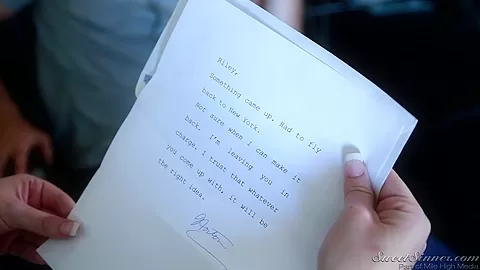 Riley,
Something came up. Had to fly
back to New York.
Not sure when I can make it
back. I'm leaving you in
charge. I trust that whatever
you come up with, it will be
the right idea.
SweetSinner.com
Part of Mile High Media